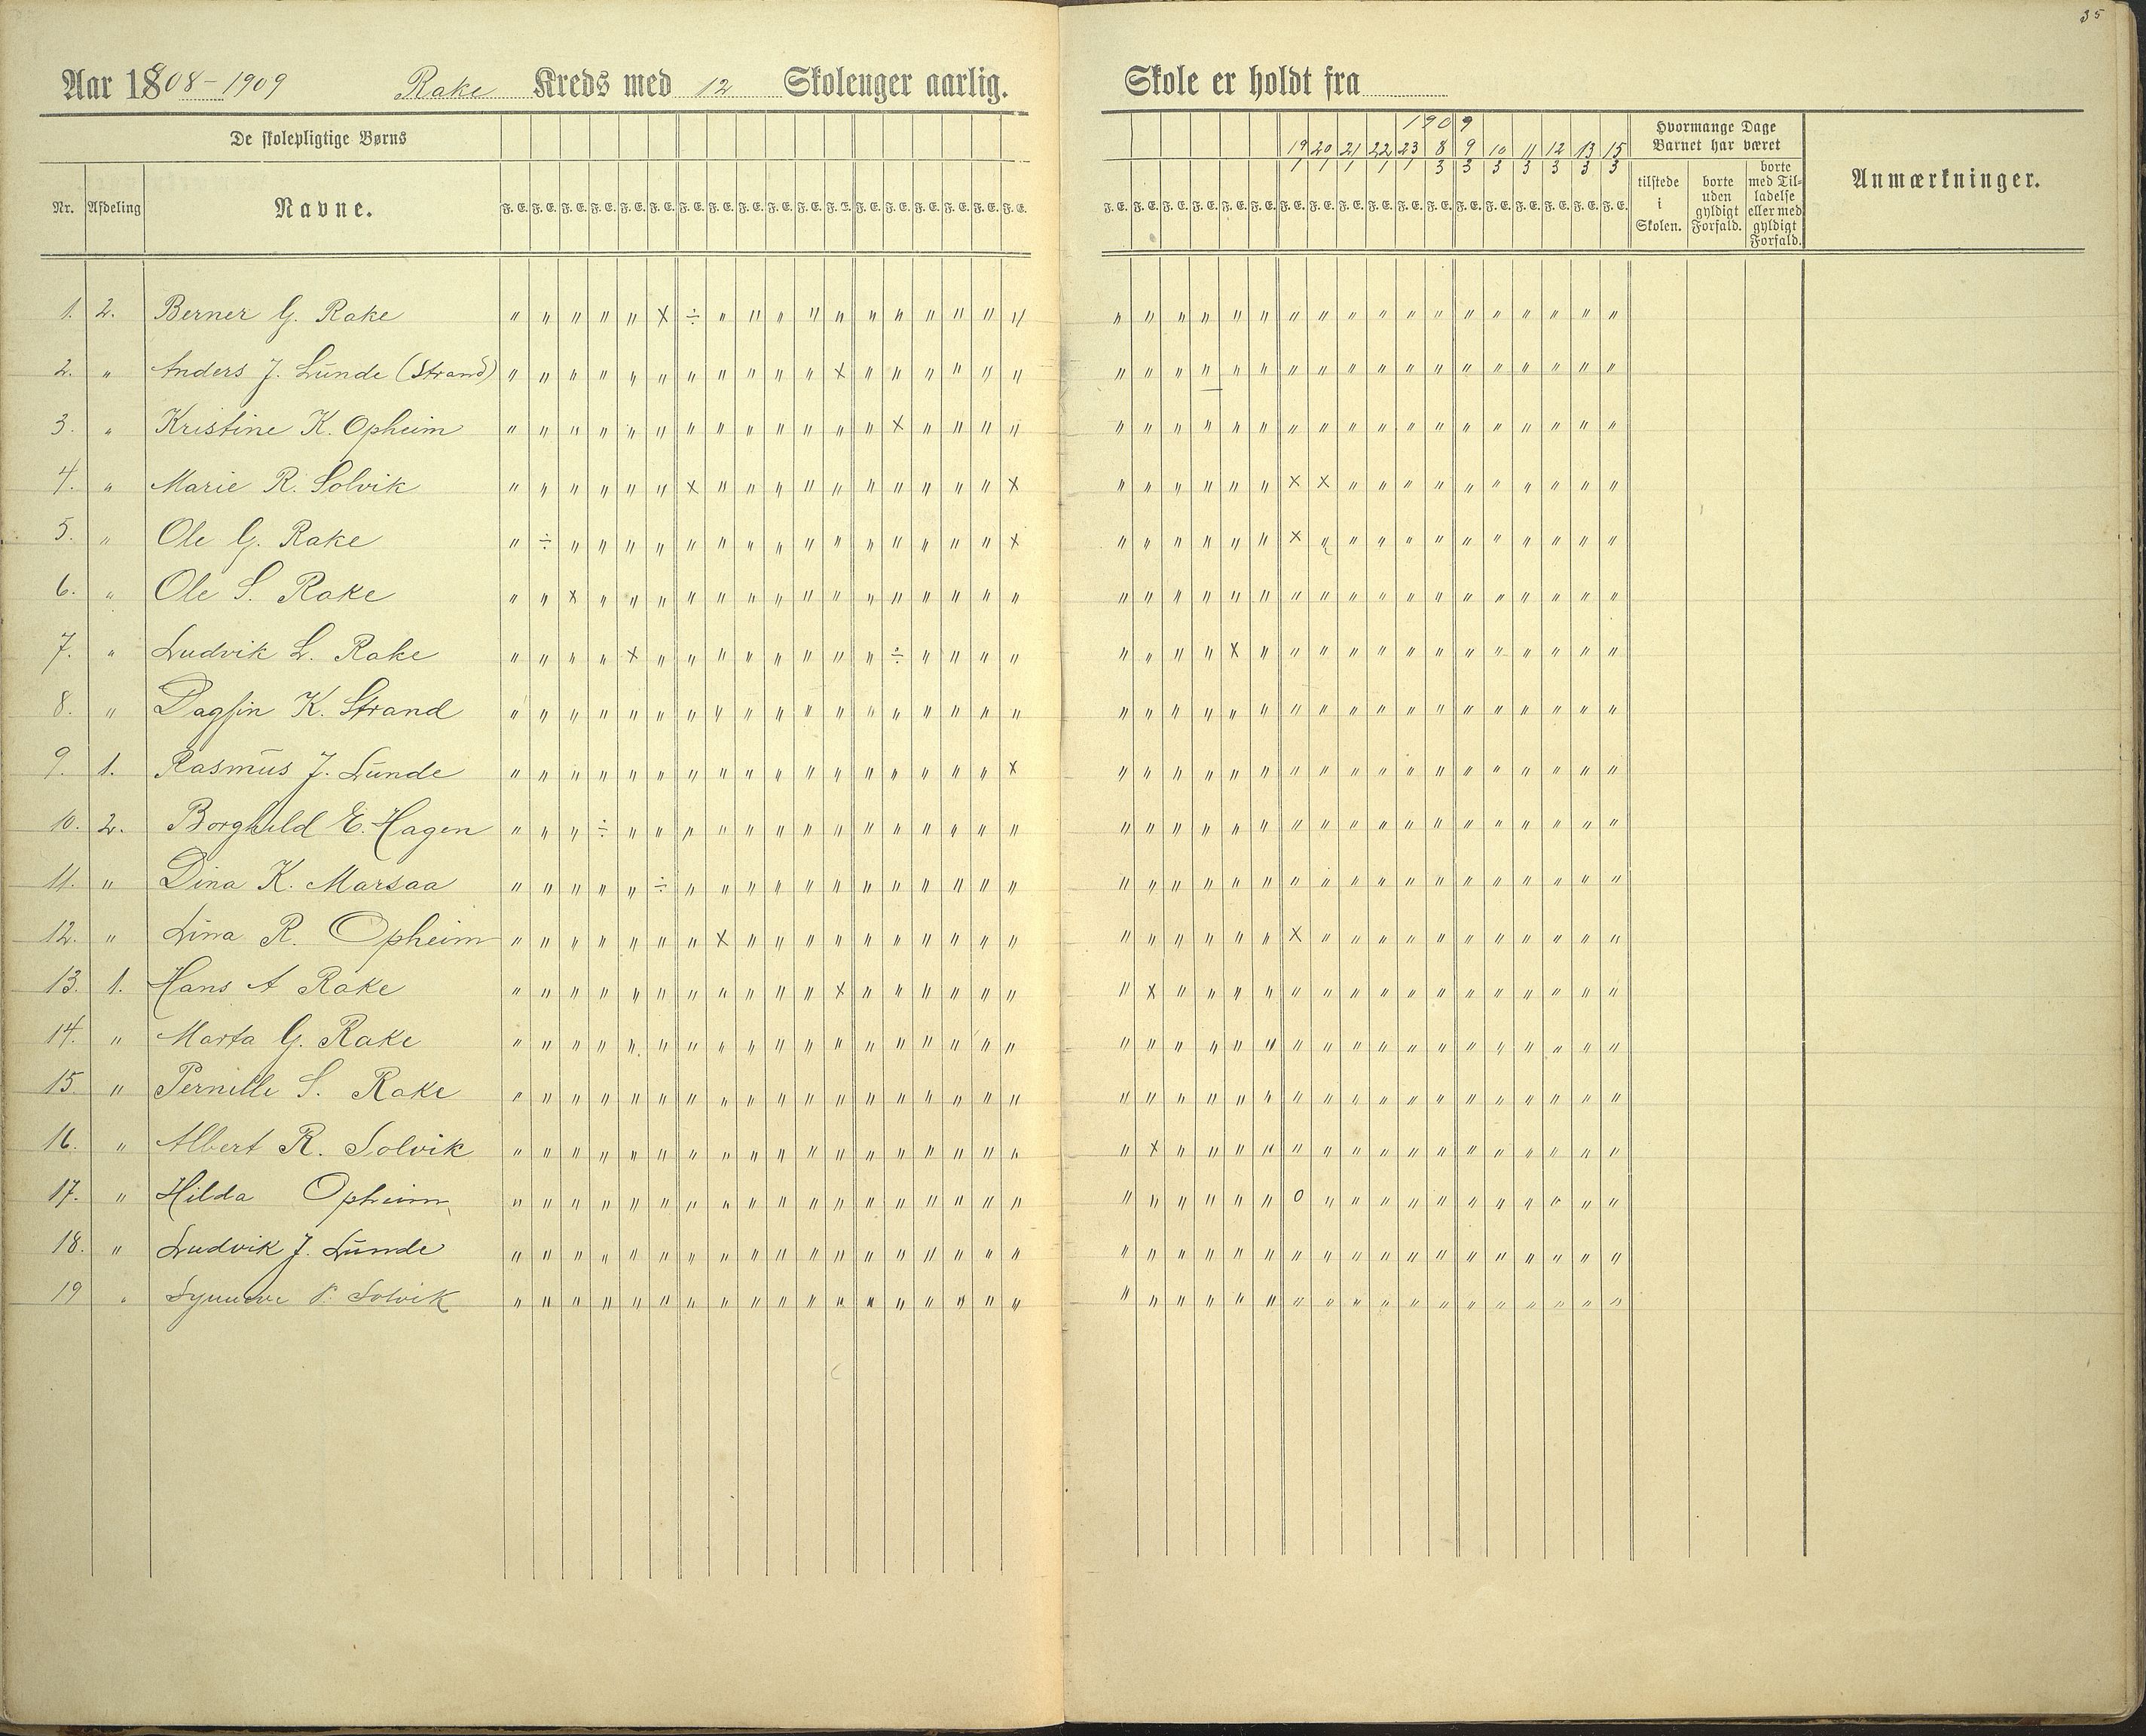 35
Aar 1908-1909 Rake Kreds med 12 Skolenger aarlig. Skole er holdt fra
De skolepligtige Børns
Nr. Afdeling Navne.
F. E. F. E. F. E. F. E. F. E. F. E. F. E. F. E. F. E. F. E. F. E. F. E. F. E. F. E. F. E. F. E. F. E. F. E.
1909
19 20 21 22 23 8 9 10 11 12 13 15
1 1 1 1 1 3 3 3 3 3 3 3
F. E. F. E. F. E. F. E. F. E. F. E. F. E. F. E. F. E. F. E. F. E. F. E. F. E. F. E. F. E. F. E. F. E. F. E.
Hvormange Dage
Barnet har været
tilstede
i
Skolen.
borte
uden
gyldigt
Forfald.
borte
med Til-
ladelse
eller med
gyldigt
Forfald.
Anmærkninger.
1. 2. Berner G. Rake
2. " Anders J. Lunde (Strand)
3. " Kristine K. Opheim
4. " Marie R. Solvik
5. " Ole G. Rake
6. " Ole S. Rake
7. " Ludvik L. Rake
8. " Dagfin K. Strand
9. 1. Rasmus J. Lunde
10. 2. Borghild E. Hagen
11. " Dina K. Marsaa
12. " Lina R. Opheim
13. 1. Hans A Rake
14. " Marta G. Rake
15 " Pernille S. Rake
16. " Albert R. Solvik
17. " Hilda Opheim
18. " Ludvik J. Lunde
19 " Synneve Solvik